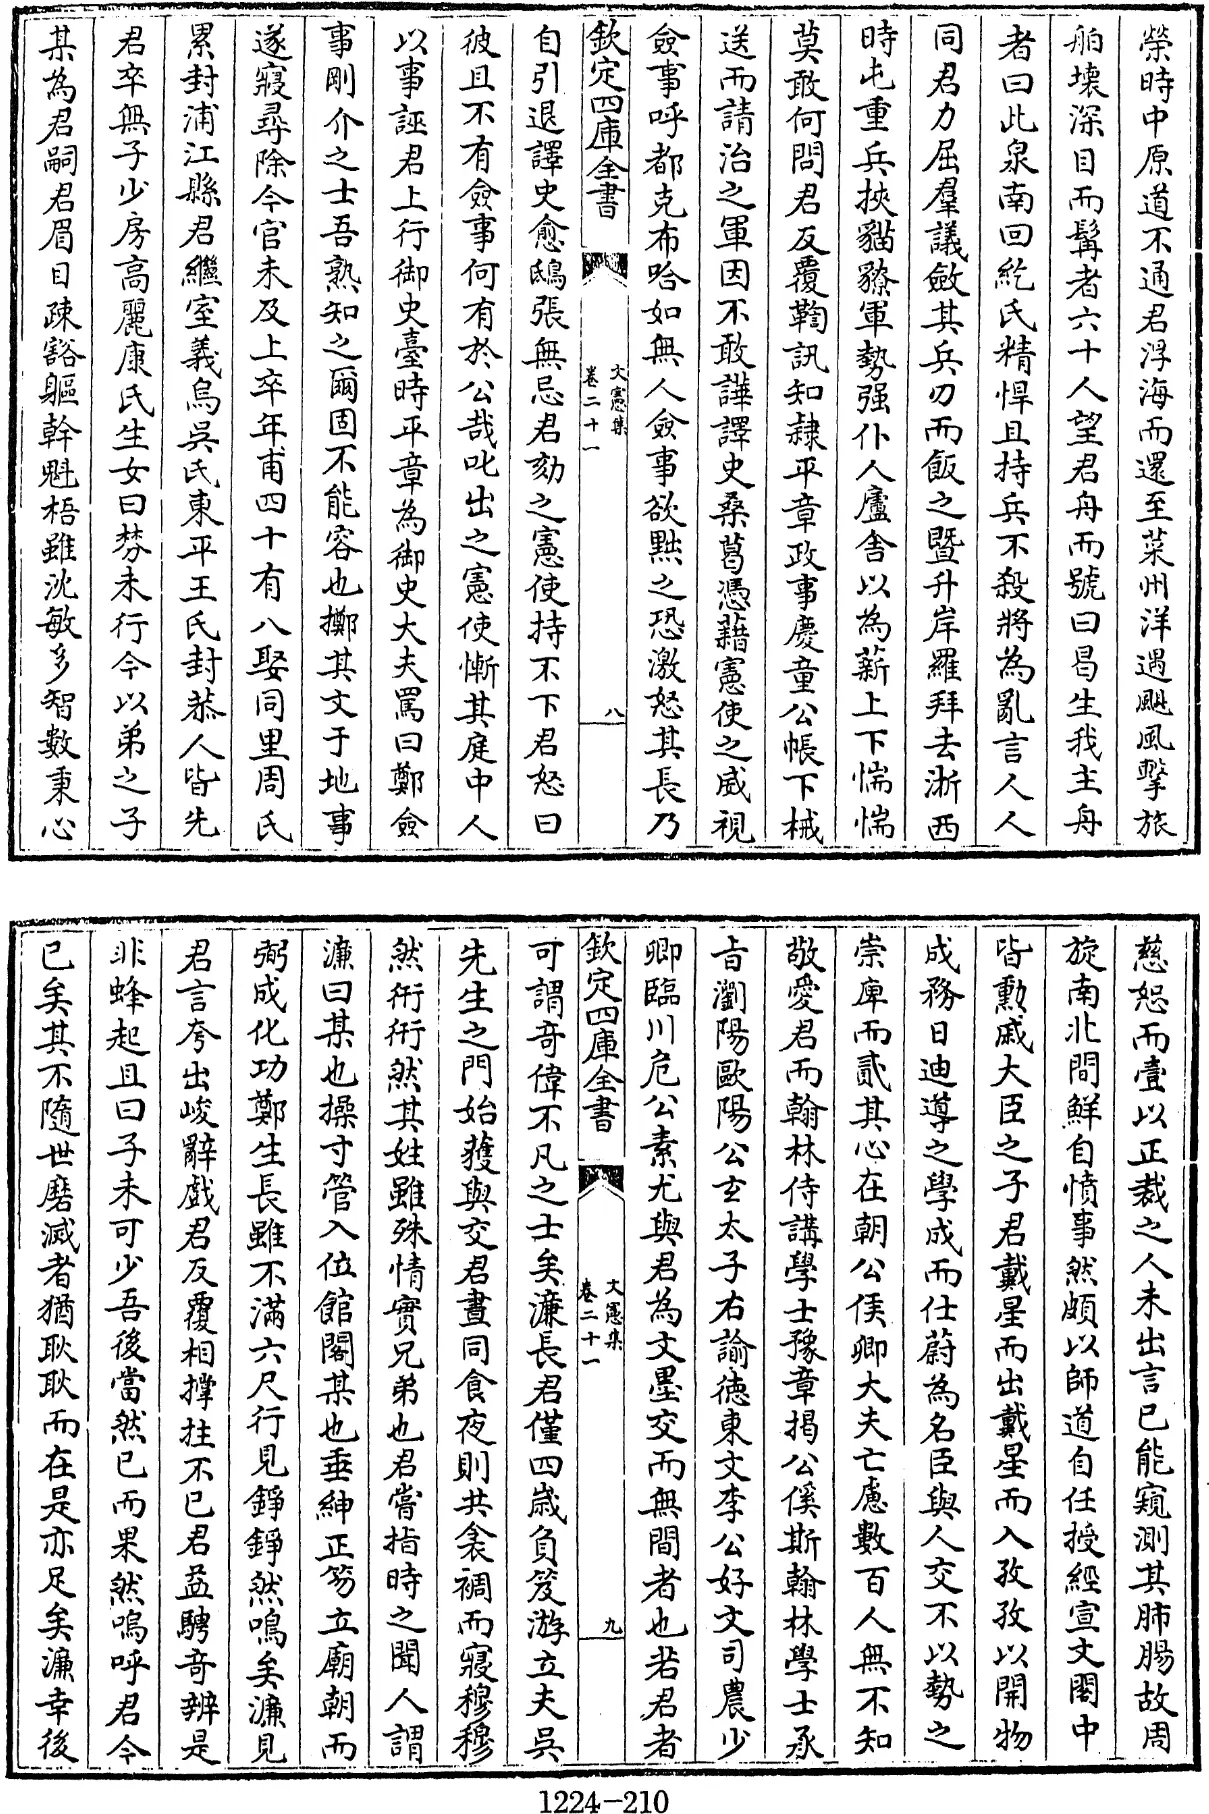 榮時中原道不通君浮海而還至菜州洋遇颶風擊旅
舶壞深目而髯者六十人望君舟而號曰曷生我主舟
者曰此泉南回紇氏精悍且持兵不殺將為亂言人人
同君力屈羣議斂其兵刃而飯之暨升岸羅拜去浙西
時屯重兵挾貓獠軍勢强仆人廬舍以為薪上下惴惴
莫敢何問君反覆鞫訊知隷平章政事慶童公帳下械
送而請治之軍因不敢譁譯史桑葛憑藉憲使之威視
僉事呼都克布哈如無人僉事欲黜之恐激怒其長乃
欽定四庫全書
文憲集
卷二十一
八
自引退譯史愈鴟張無忌君劾之憲使持不下君怒曰
彼且不有僉事何有於公哉叱出之憲使慚其庭中人
以事誣君上行御史臺時平章為御史大夫罵曰鄭僉
事剛介之士吾熟知之爾固不能容也擲其文于地事
遂寢尋除今官未及上卒年甫四十有八娶同里周氏
累封浦江縣君繼室義烏吳氏東平王氏封恭人皆先
君卒無子少房高麗康氏生女曰棼未行今以弟之子
某為君嗣君眉目疎豁軀幹魁梧雖沈敏多智數秉心
慈恕而壹以正裁之人未出言已能窺測其肺腸故周
旋南北間鮮自憤事然頗以師道自任授經宣文閣中
皆勳戚大臣之子君戴星而出戴星而入孜孜以開物
成務日迪導之學成而仕蔚為名臣與人交不以勢之
崇庳而貳其心在朝公侯卿大夫亡慮數百人無不知
敬愛君而翰林侍講學士豫章揭公傒斯翰林學士承
旨瀏陽歐陽公玄太子右諭德東文李公好文司農少
卿臨川危公素尤與君為文墨交而無間者也若君者
欽定四庫全書
文憲集
卷二十一
九
可謂奇偉不凡之士矣濂長君僅四歲負笈游立夫吳
先生之門始獲與交君晝同食夜則共衾裯而寢穆穆
然衎衎然其姓雖殊情實兄弟也君嘗指時之聞人謂
濂曰某也操寸管入位館閣某也垂紳正笏立廟朝而
弼成化功鄭生長雖不滿六尺行見錚錚然鳴矣濂見
君言夸出峻辭戲君反覆相撑拄不已君益騁奇辨是
非蜂起且曰子未可少吾後當然已而果然嗚呼君今
已矣其不隨世磨滅者猶耿耿而在是亦足矣濂幸後
1224-210